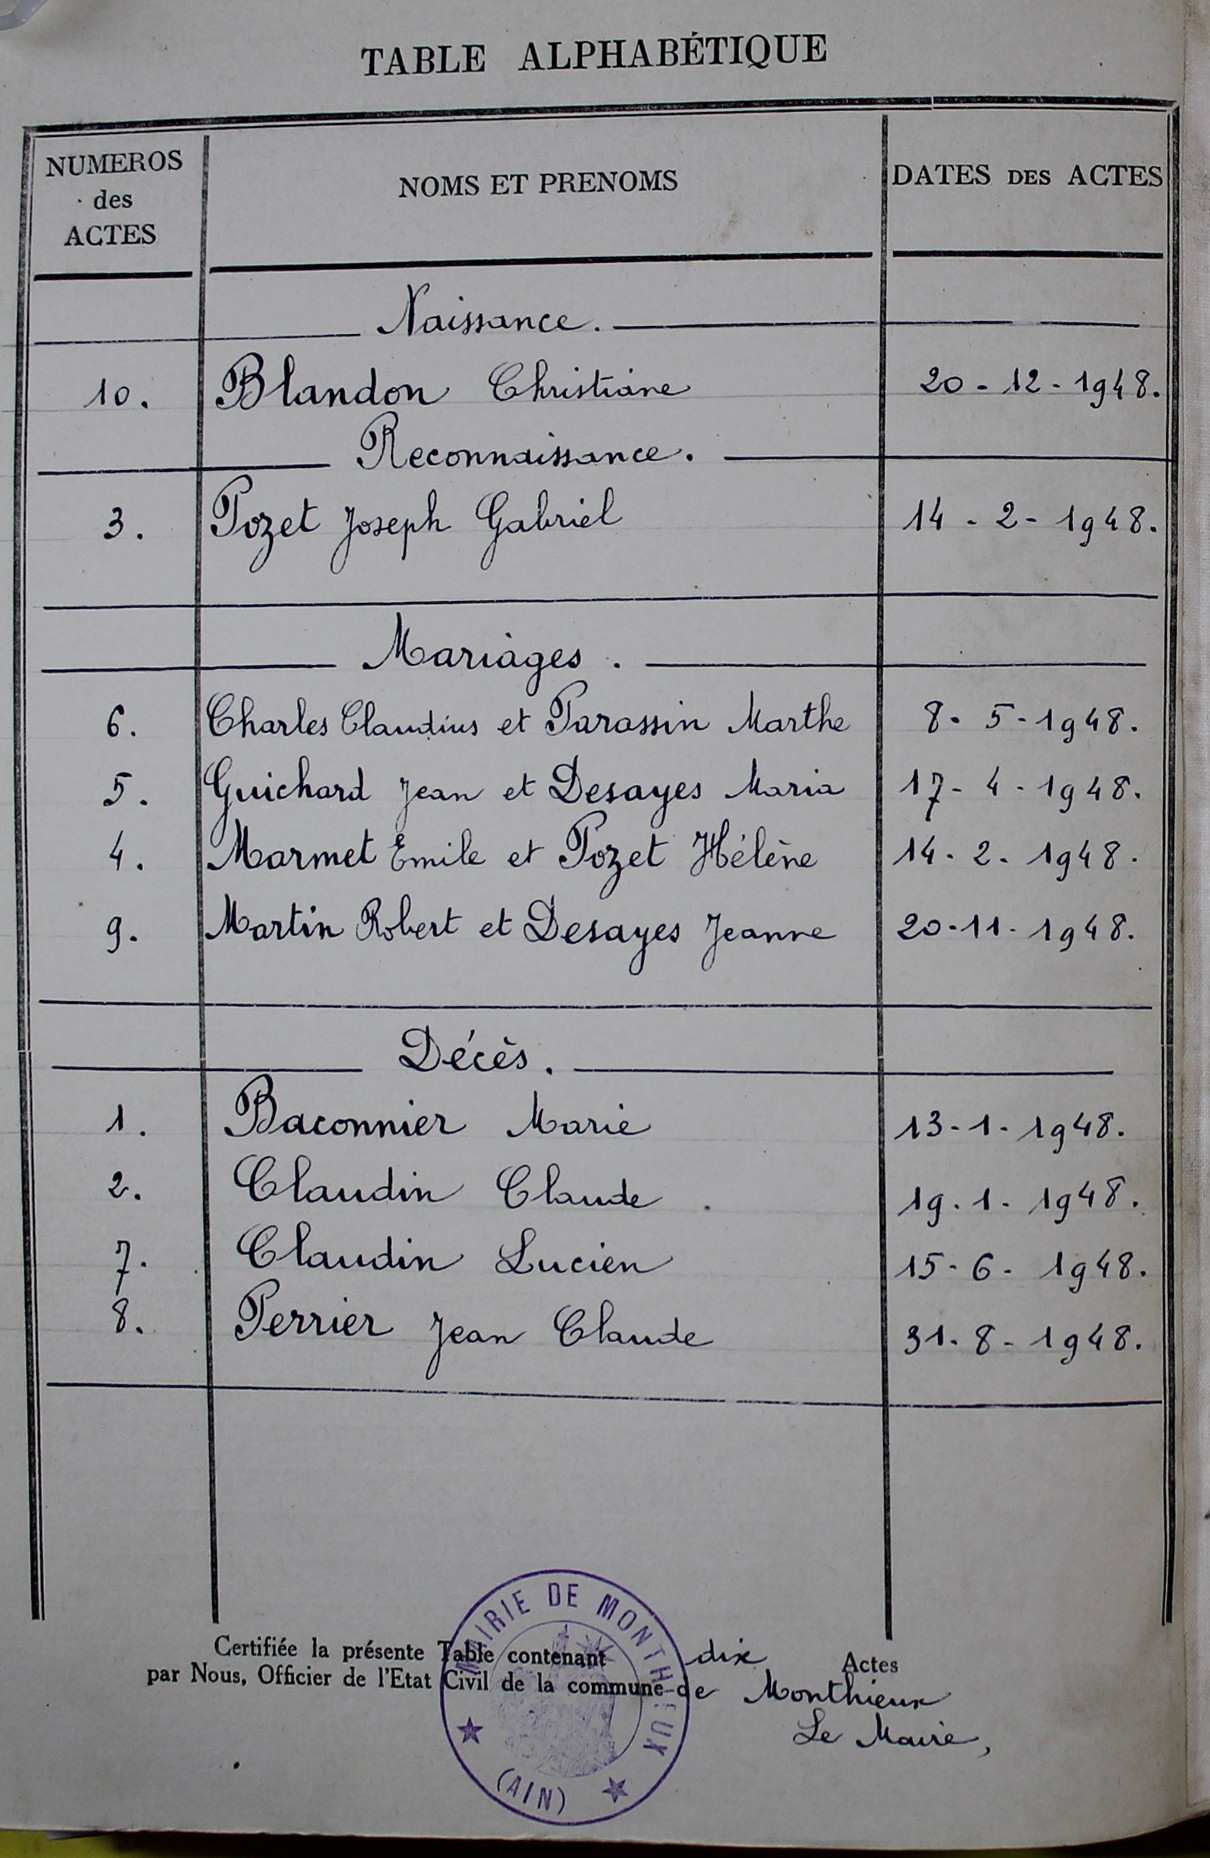 TABLE ALPHABÉTIQUE
NUMEROS des ACTES
NOMS ET PRENOMS
DATES DES ACTES
Naissance.
10. Blandon Christiane 20-12-1948.
Reconnaissance.
3. Pozet Joseph Gabriel 14-2-1948.
Mariages.
6. Charles Claudius et Parassin Marthe 8-5-1948.
5. Guichard Jean et Desayes Maria 17-4-1948.
4. Marmet Emile et Pozet Hélène 14-2-1948.
9. Martin Robert et Desayes Jeanne 20-11-1948.
Décès.
1. Baconnier Marie 13-1-1948.
2. Claudin Claude. 19-1-1948.
7. Claudin Lucien 15-6-1948.
8. Perrier Jean Claude 31-8-1948.
Certifiée la présente Table contenant dix Actes
par Nous, Officier de l'Etat Civil de la commune de Monthieux
Le Maire,
MAIRIE DE MONTHIEUX
(AIN)